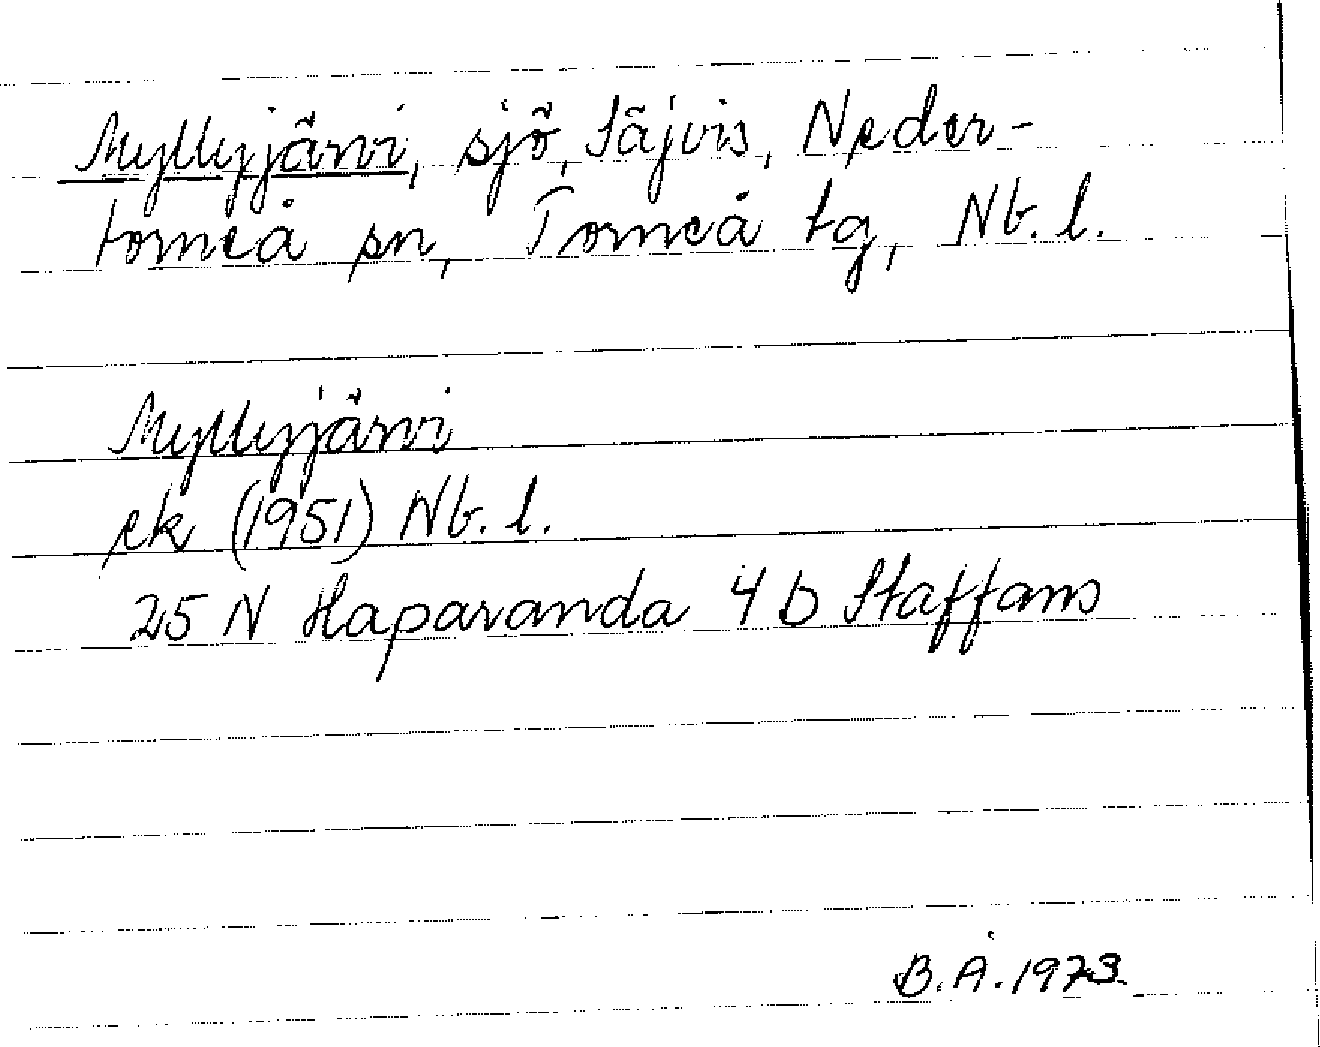 Myllyjärvi, sjö, Säjvis, Neder-
torneå sn, Torneå tg, Nb. l.
Myllyjärvi
ek (1951) Nb. l.
25 N Haparanda 4 b Staffans
B.Å. 1973.